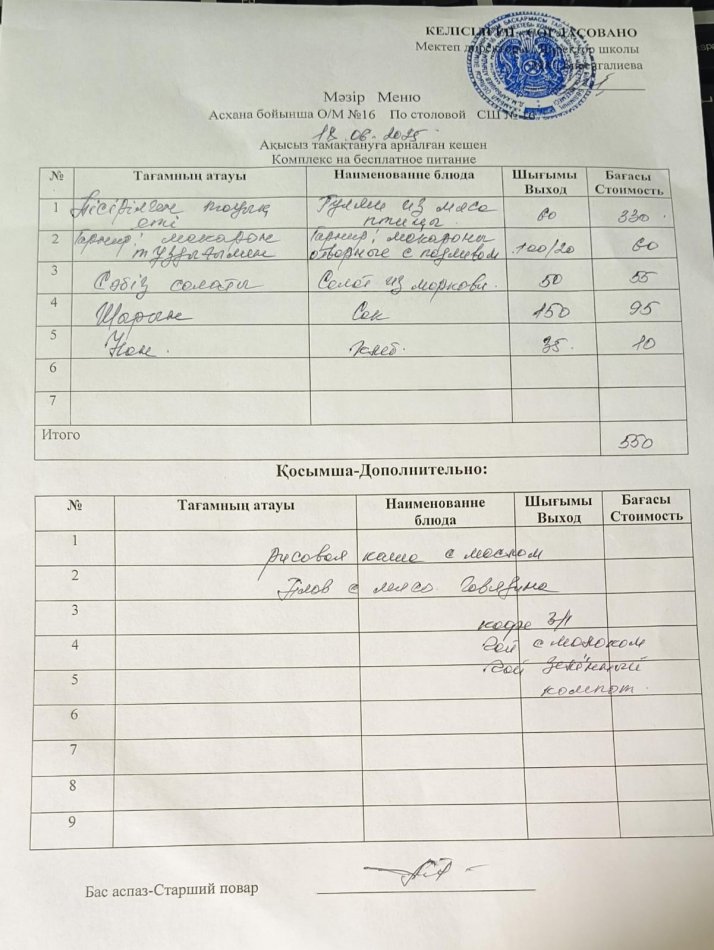 КЕЛІСІЛГЕН СОГЛАСОВАНО
Мектеп директоры Директор школы
Мәзір Меню
Асхана бойынша О/М №16 По столовой СШ № 16
18.06.2025
Ақысыз тамақтануға арналған кешен
Комплекс на бесплатное питание
№ Тағамның атауы Наименование блюда Шығымы Выход Бағасы Стоимость
1 Пісірілген тауық еті Гуляш из мяса птицы 60 330
2 Гарнир: макарон тұздығымен Гарнир: макароны отварные с подливом 100/20 60
3 Сәбіз салаты Салат из моркови. 50 55
4 Шырын Сок 150 95
5 Нан. Хлеб. 35 10
6
7
Итого 550
Қосымша-Дополнительно:
№ Тағамның атауы Наименование блюда Шығымы Выход Бағасы Стоимость
1 Рисовая каша с маслом
2 Плов с мясо говядина
3 кофе 3/1
4 чай с молоком
чай зелённый
5 компот.
6
7
8
9
Бас аспаз-Старший повар